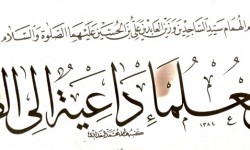 الهمام سيد الساجدين وزين العابدين علي بن الحسين عليهما الصلوة والسلام
لعلماء داعية الى
١٣٨٤